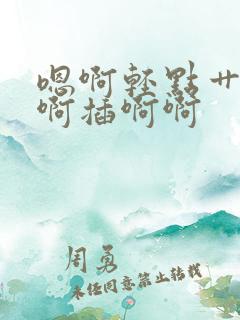 嗯啊轻點艹
啊插啊啊
周勇
未经同意禁止转载